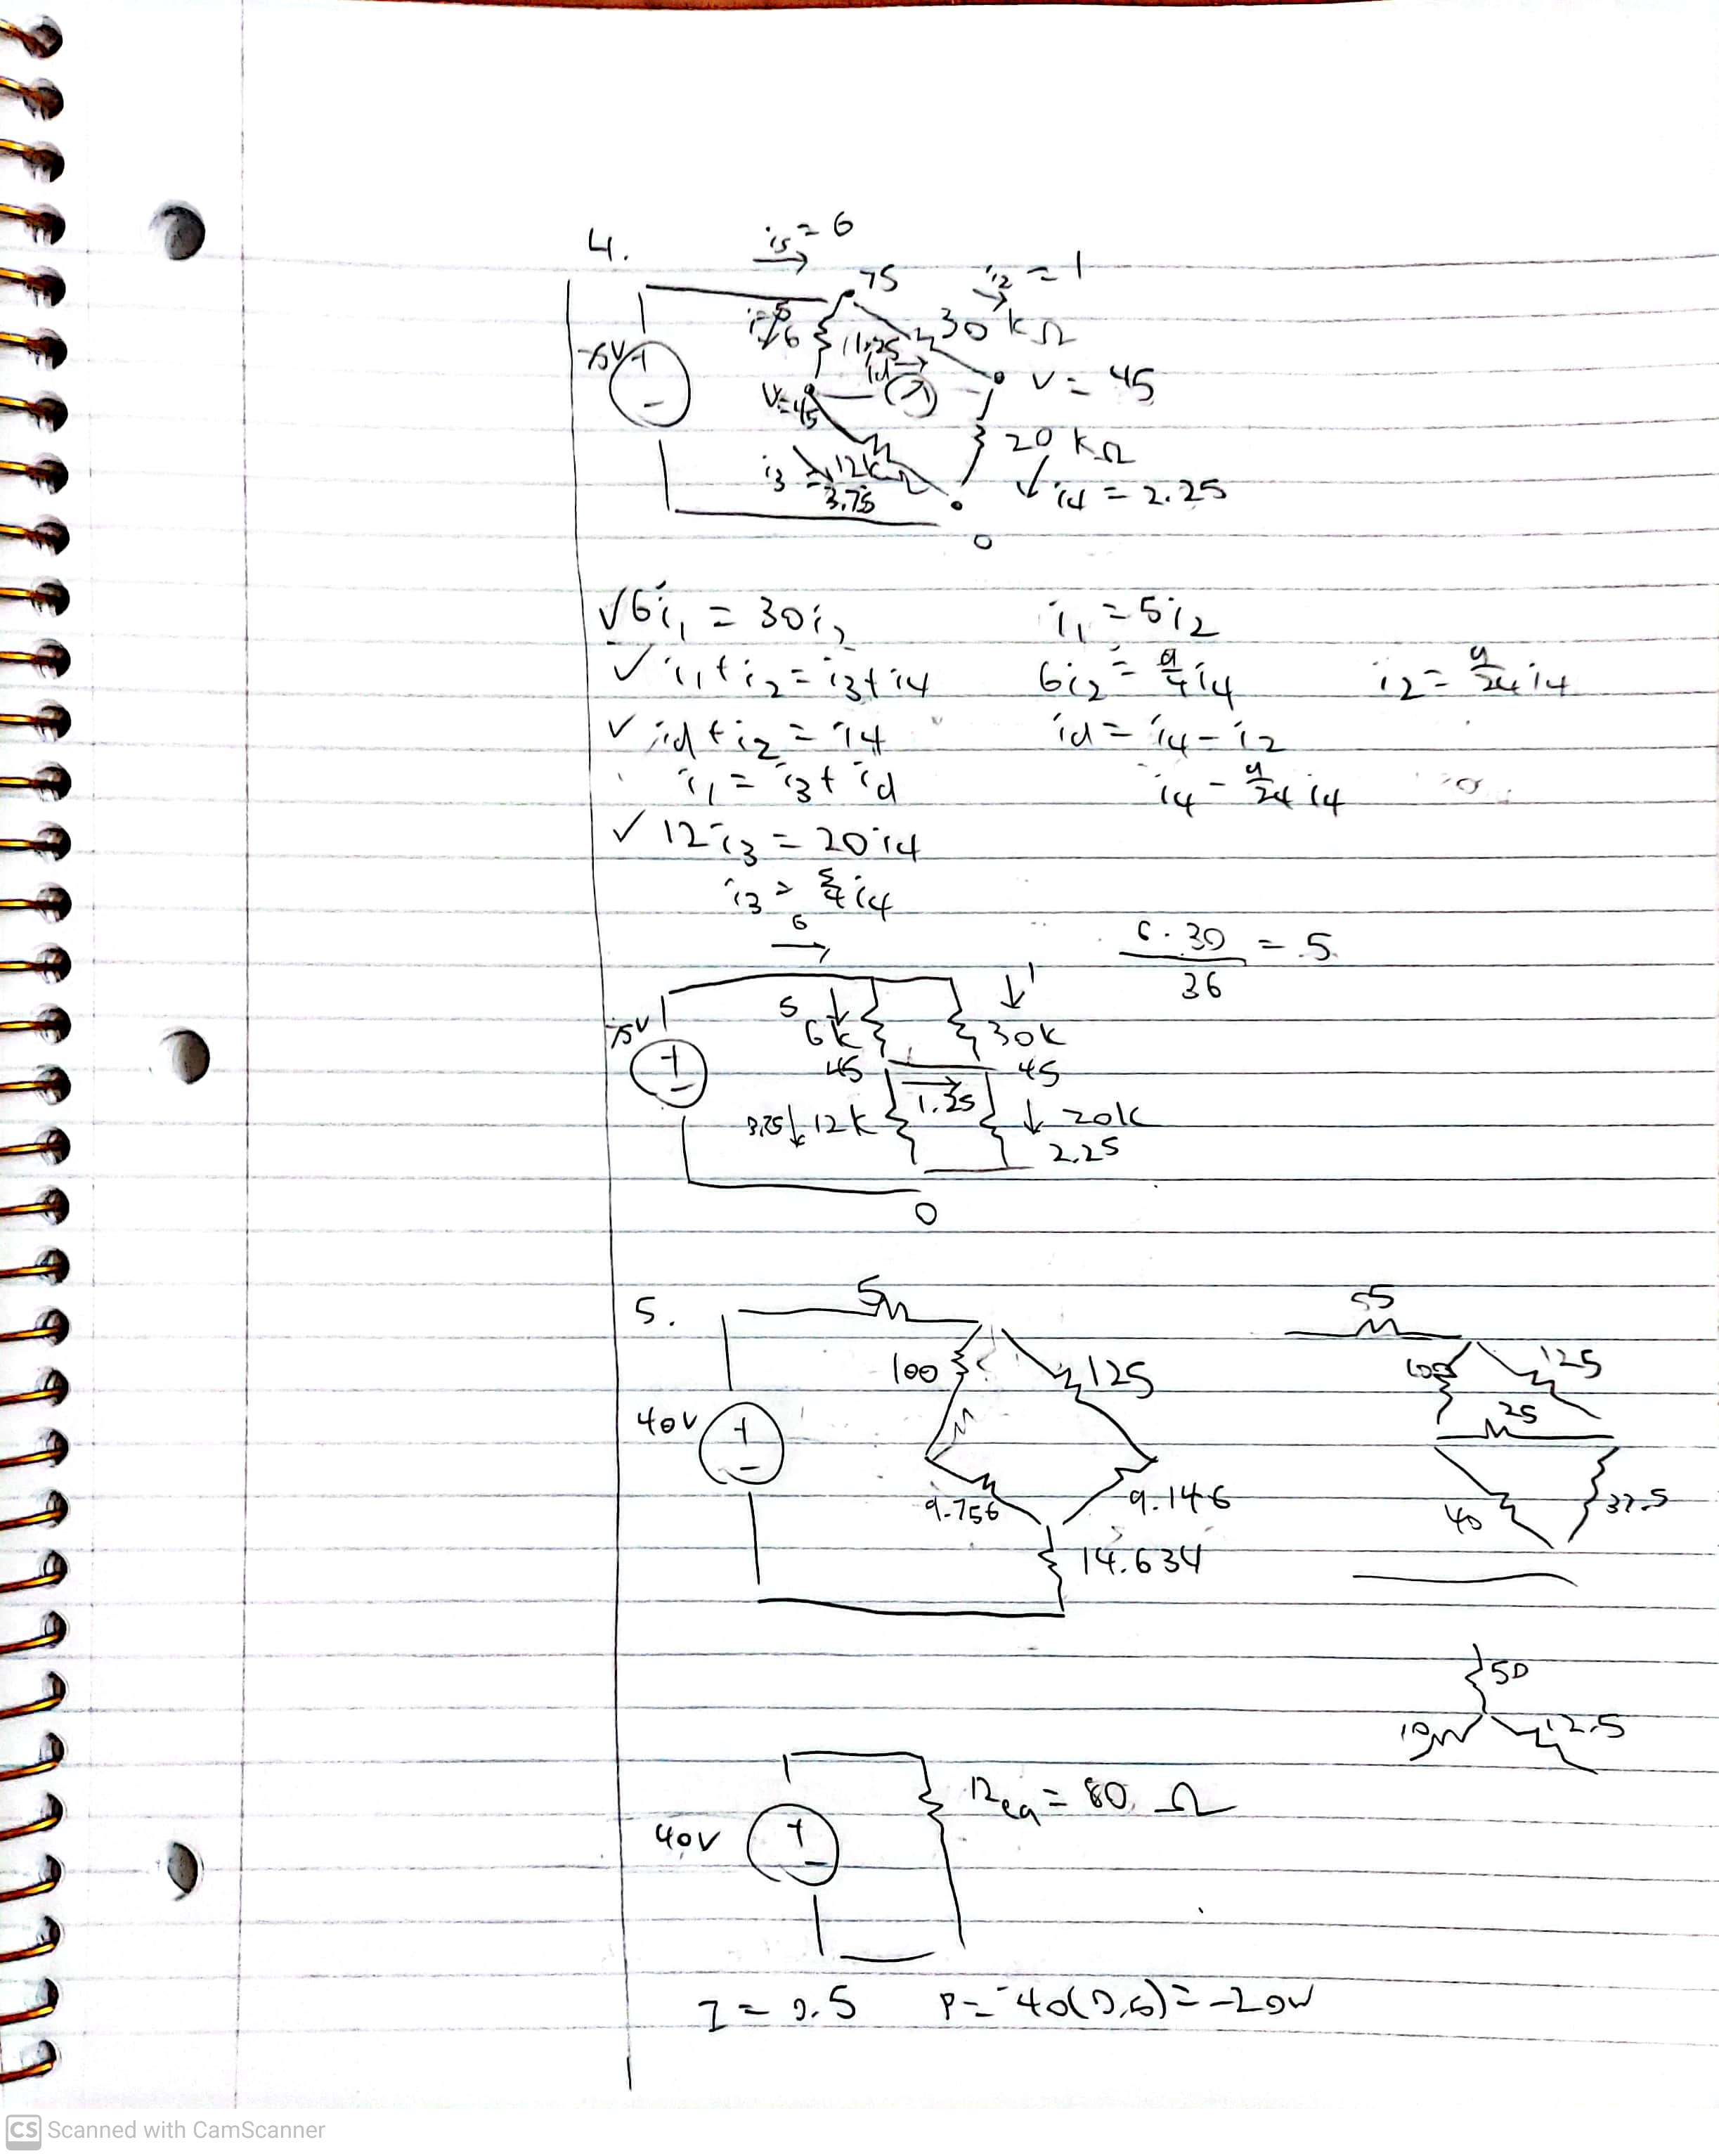 4.
is = 6
75
i2 = 1
30 kΩ
75V
6
1.25
id
V = 45
V=45
20 kΩ
i3 = 3.75
12k
i4 = 2.25
0
√ 6i1 = 30i2
i1 = 5i2
√ i1 + i2 = i3 + i4
6i2 = 9/4 i4
i2 = 9/24 i4
√ id + i2 = i4
id = i4 - i2
i1 = i3 + id
i4 - 9/24 i4
√ 12i3 = 20i4
i3 = 5/4 i4
6
6·30 / 36 = 5
5
1
75V
6k
30k
45
45
1.25
3.75
12k
20k
2.25
0
5.
5
55
100
125
100
125
40V
25
9.756
9.146
40
37.5
14.634
50
10
12.5
Req = 80 Ω
40V
I = 0.5
P = -40(0.5) = -20W
CS Scanned with CamScanner